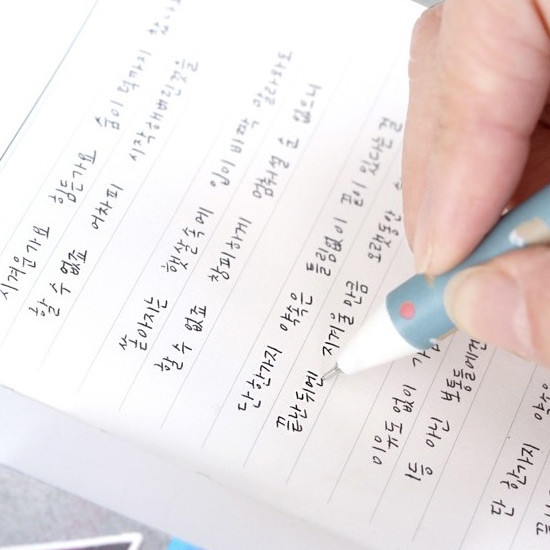 지겨운가요 힘든가요 숨이 턱까지
할 수 없죠 어차피 시작해버린 것을
쏟아지는 햇살속에 입이 바싹 말라와도
할 수 없죠 창피하게 멈춰설 순 없으니
단 한가지 약속은 틀림없이 끝이 있다는 것
끝난 뒤엔 지겨울 만큼 오랫동안
이유도 없이
등 아닌 보통들에겐
단 한가지 약속은